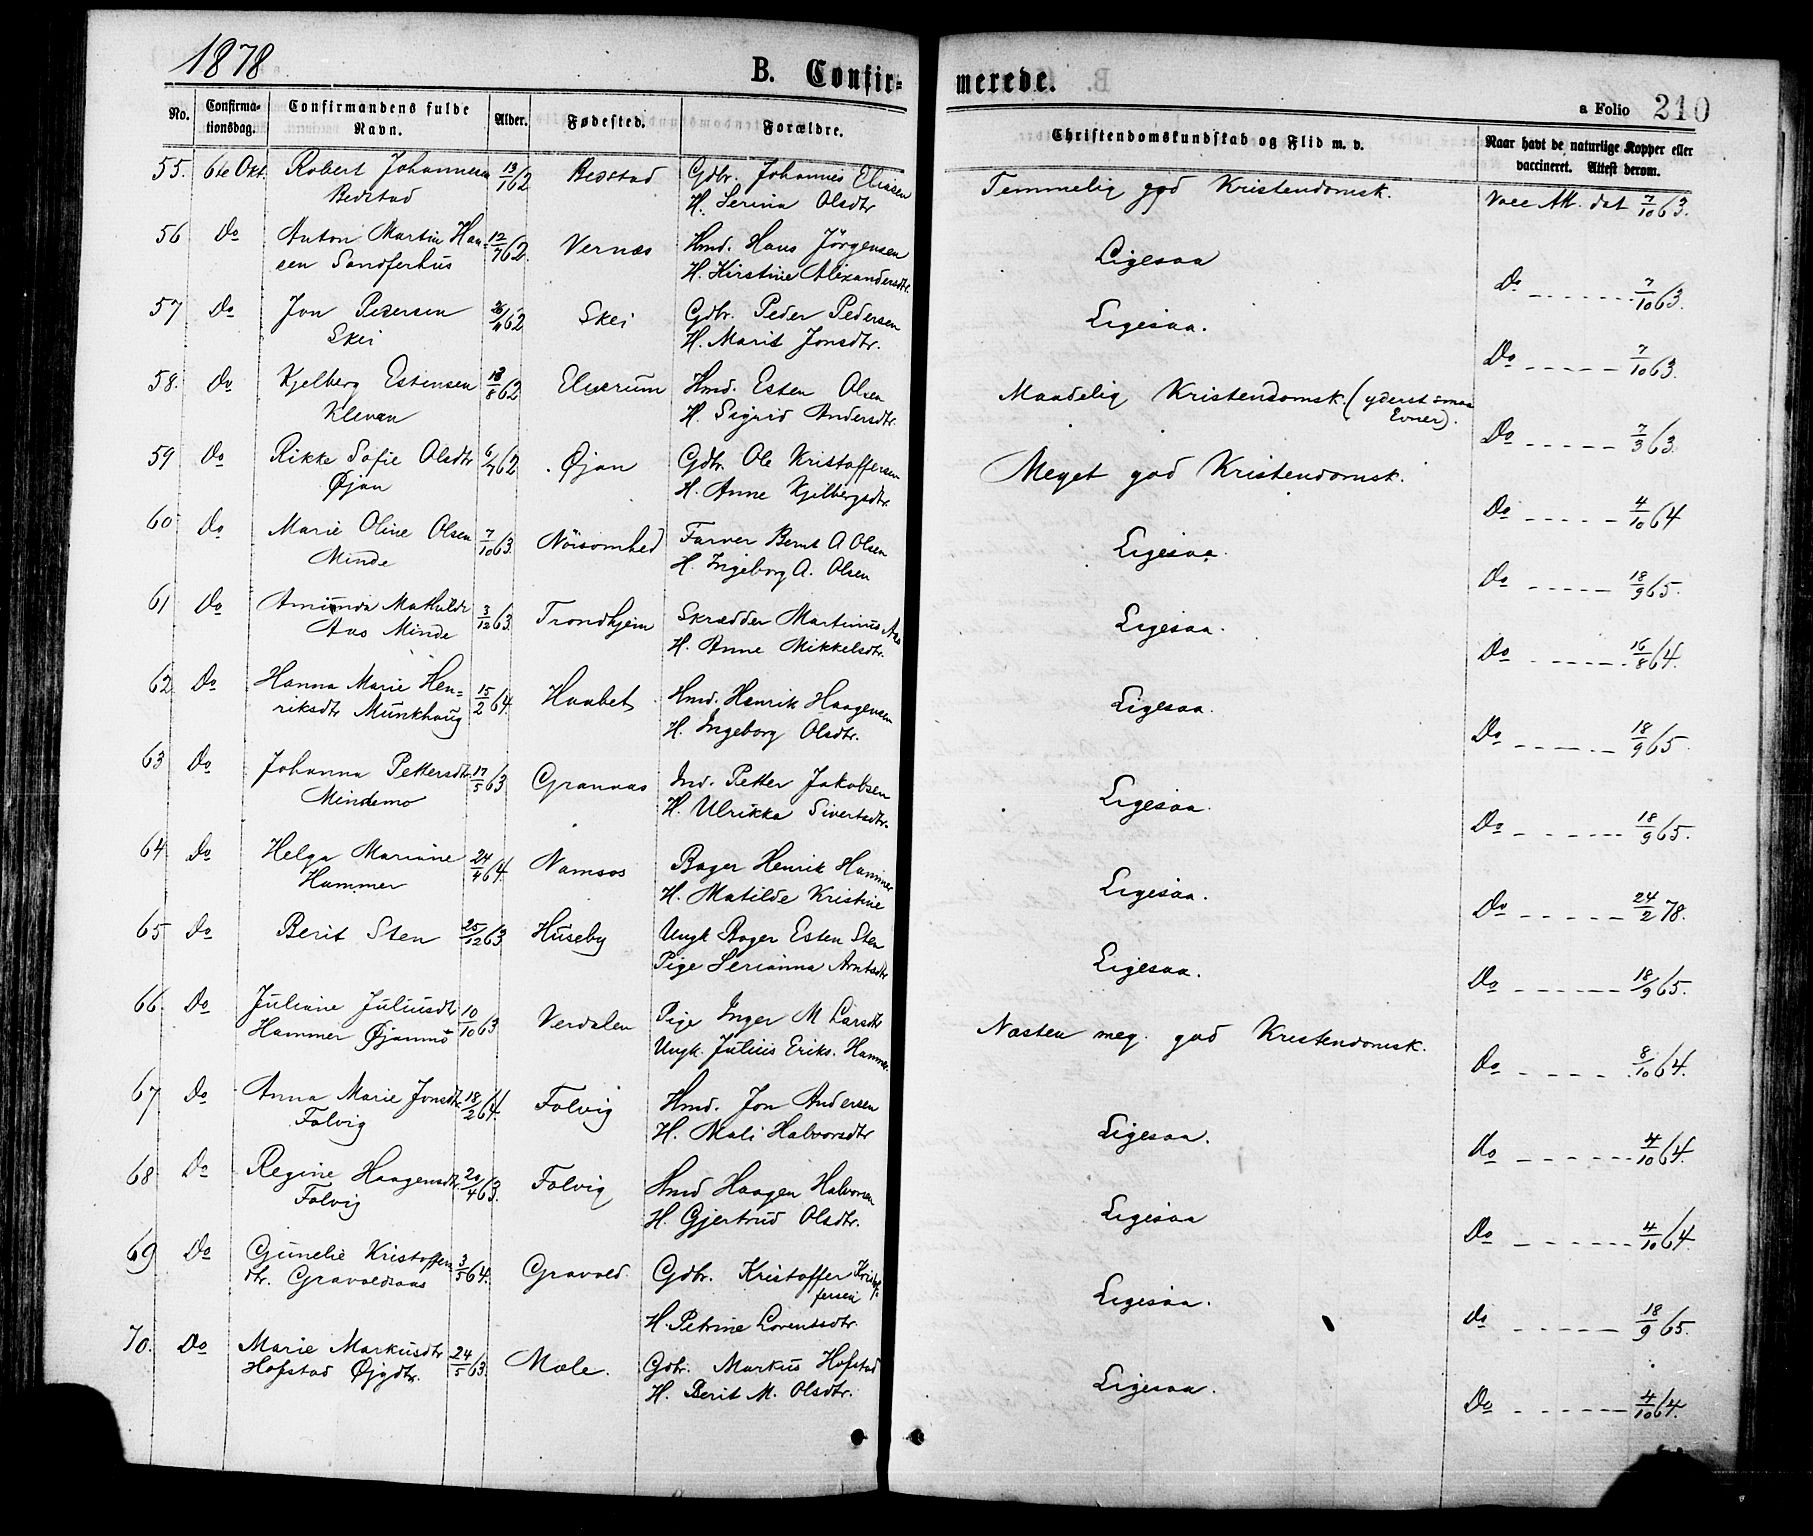 1878
B. Confir-
merede.
a Folio 210
No. Confirma-tionsdag. Confirmandens fulde Navn. Alder. Fødested. Forældre.
Christendomskundskab og Flid m. v.
Naar havt de naturlige Kopper eller vaccineret. Attest derom.
55. 6te Okt. Robert Johannesen 13/1 62 Bedstad Gdbr. Johannes Elissen Temmelig god Kristendomsk. Vacc Att. dat 7/10 63.
Bedstad H. Serina Olsdtr
56 Do Anton Martin Han- 12/7 62. Vernæs Hmd. Hans Jörgensen Ligesaa Do 7/10 63.
sen Sandferhus H. Kirstine Alexandersdtr.
57 Do Jon Pedersen 62 Skei Gdbr. Peder Pedersen Ligesaa. Do 7/10 63.
Skei H. Marit Jonsdtr.
58. Do Kjelberg Estensen 13/8 62 Elverum Hmd. Esten Olsen Maadelig Kristendomsk. (yderst smaa Evner). Do 7/3 63.
Klevan H. Sigrid Andersdtr.
59 Do Rikke Sofie Olsdtr 6/7 62 Øjan Gdbr. Ole Kristoffersen Meget god Kristendomsk. Do 4/10 64
Øjan H. Anne Kjelbergsdtr.
60 Do Marie Oline Olsen 7/10 63. Nöisomhed Farver Bernt A Olsen Ligesaa. Do 18/9 65.
Minde H. Ingeborg A. Olsen
61 Do Amunda Mathilde 3/12 63. Trondhjem Skrædder Martinus Aas Ligesaa. Do 16/8 64.
Aas Minde H. Anne Mikkelsdtr.
62 Do Hanna Marie Hen= 15/2 64. Haabet Hmd. Henrik Haagensen Ligesaa. Do 18/9 65.
riksdtr Munkhaug H. Ingeborg Olsdtr.
63 Do Johanna Pettersdtr 17/5 63 Grannæs Ind. Petter Jakobsen Ligesaa. Do 18/9 65.
Mindemo H. Ulrikka Sivertsdtr.
64 Do Helga Mariane 24/4 64. Namsos Bager Henrik Hammer Ligesaa. Do 24/2 78.
Hammer H. Matilde Kristine
65 Do Berit Sten 25/12 63 Huseby Ungk Bager Esten Sten Ligesaa. Do 18/9 65.
Pige Serianna Arntsdtr
66. Do Juliane Juliusdtr 10/10 63 Verdalen Pige Inger M Larsdtr Næsten meg. god Kristendomsk. Do 8/10 64.
Hammer Øjanmo Ungk. Julius Eriks. Hammer
67 Do Anna Marie Jonsdtr 18/2 64. Folvig Hmd. Jon Andersen Ligesaa. Do 4/10 64.
Folvig H. Mali Halvorsdtr
68 Do Regine Haagensdtr. 20/4 63. Folvig Hmd Haagen Halvorsen Ligesaa Do 4/10 64.
Folvig H. Gjertrud Olsdtr.
69 Do Gunelie Kristoffers 3/5 64. Gravold. Gdbr. Kristoffer Kristof- Ligesaa. Do 18/9 65.
dtr. Gravoldsaas fersen
H. Petrine Lorentsdtr.
70. Do Marie Markusdtr 24/5 63. Mæle. Gdbr. Markus Hofstad Ligesaa. Do 4/10 64.
Hofstad Øjgdtr. H. Berit M. Olsdtr.